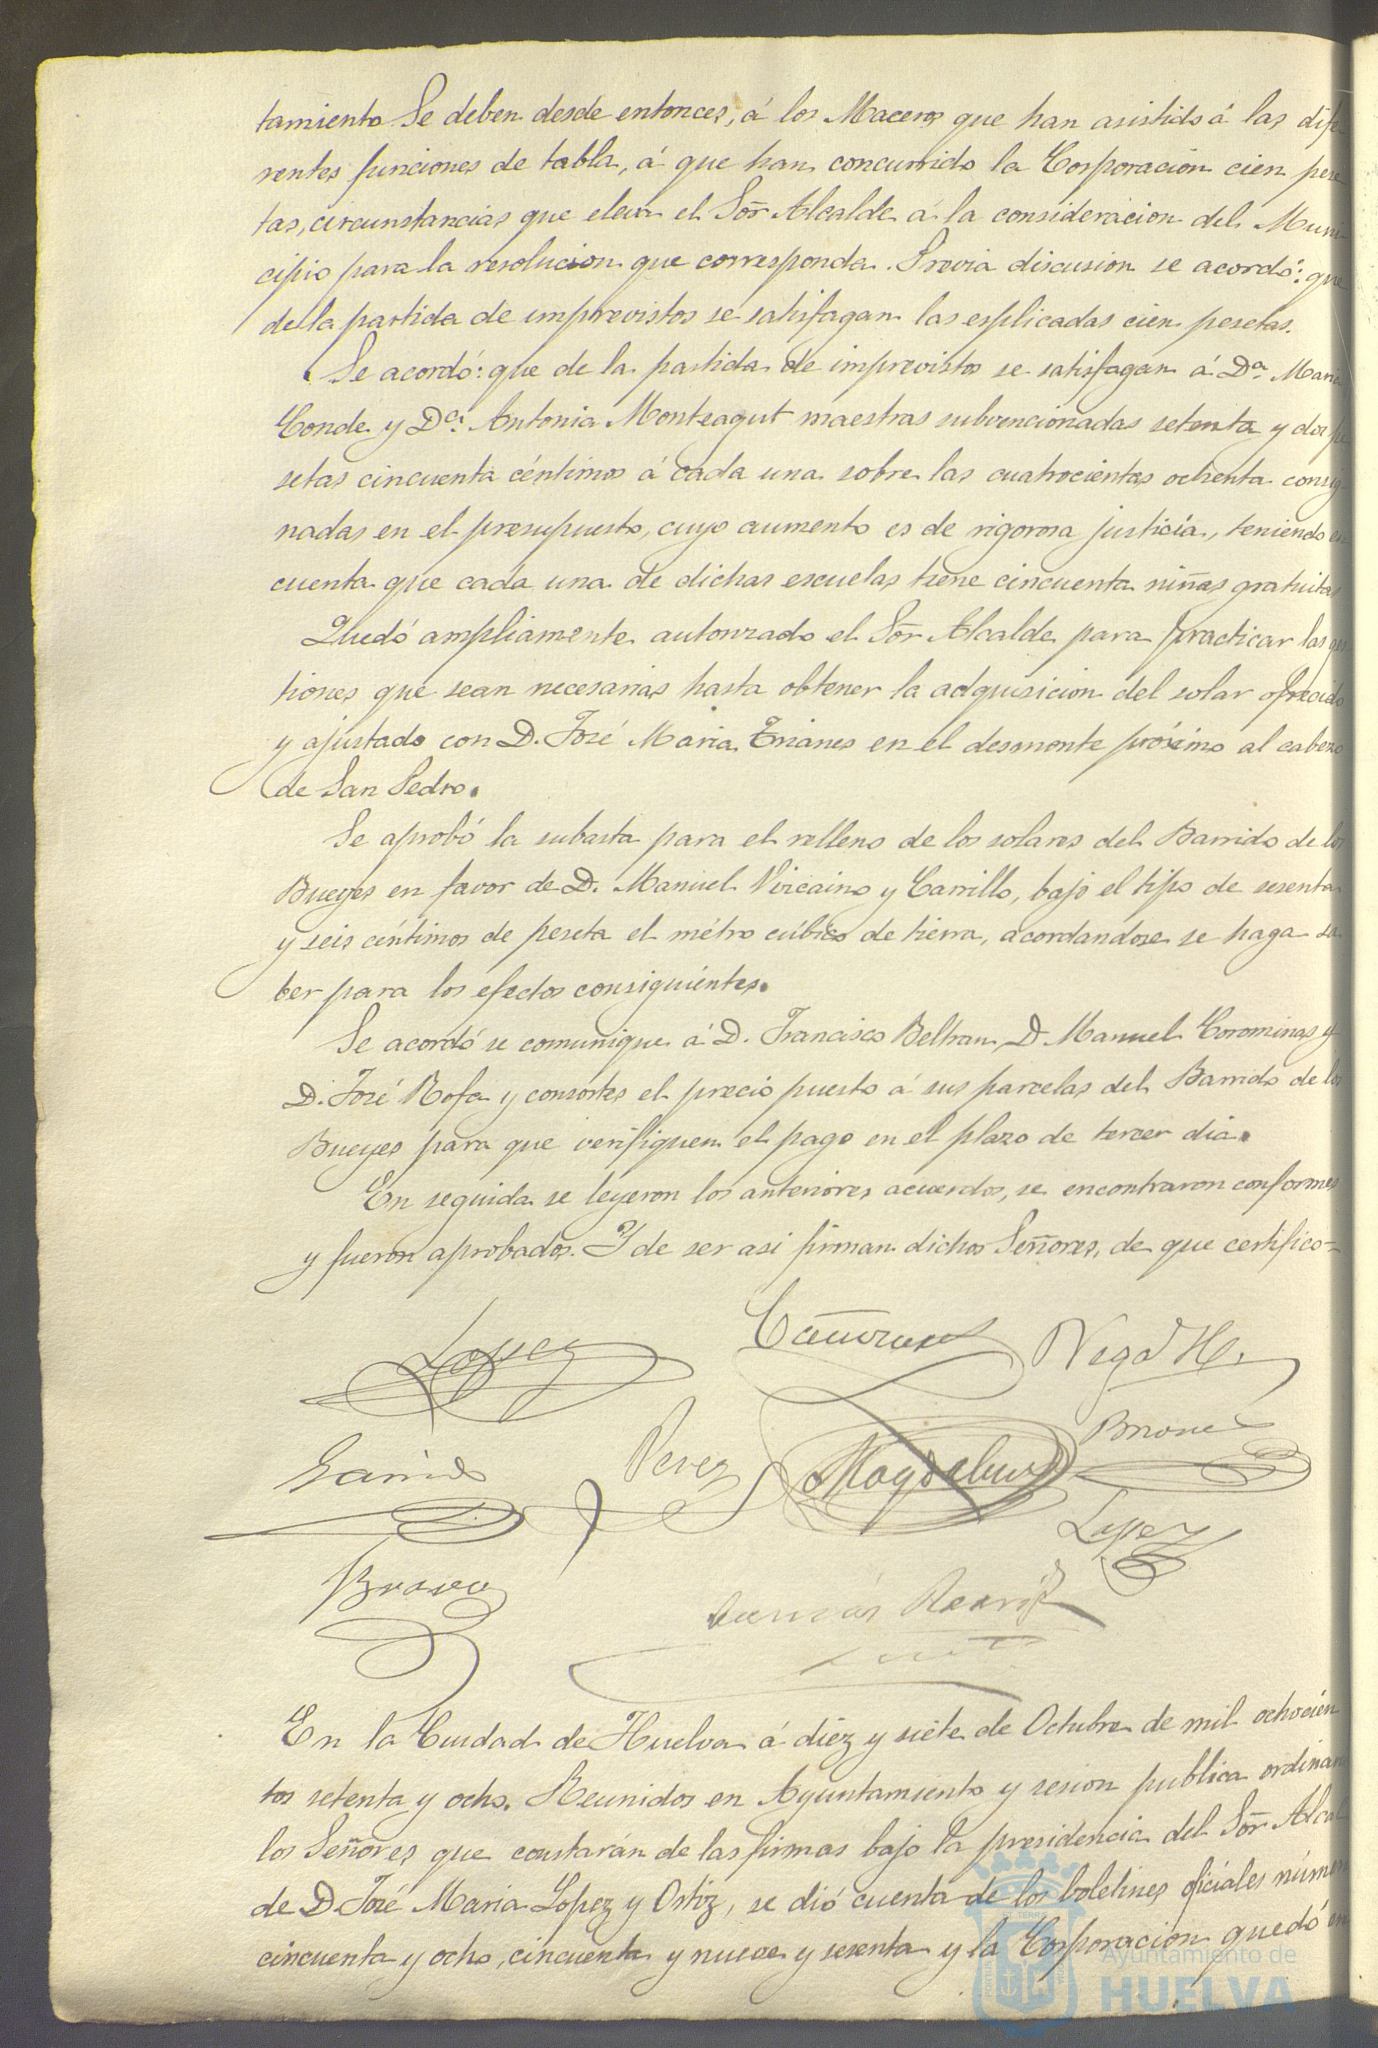 tamiento Se deben desde entonces, á los Maceros que han asistido á las dife
rentes funciones de tabla, á que han concurrido la Corporacion cien pese
tas, circunstancias que eleva el Sor Alcalde á la consideracion del Muni
cipio para la resolucion que corresponda. Previa discusion se acordó: que
de la partida de imprevistos se satisfagan las esplicadas cien pesetas.
Se acordó: que de la partida de imprevistos se satisfagan á Da Maria
Conde y Da Antonia Monteagut maestras subvencionadas setenta y dos pe
setas cincuenta céntimos á cada una sobre las cuatrocientas ochenta consig
nadas en el presupuesto, cuyo aumento es de rigorosa justicia, teniendo en
cuenta que cada una de dichas escuelas tiene cincuenta niñas gratuitas
Quedó ampliamente autorizado el Sor Alcalde para practicar las ges
tiones que sean necesarias hasta obtener la adquisicion del solar ofrecido
y ajustado con D. José Maria Trianes en el desmonte próximo al cabezo
de San Pedro.
Se aprobó la subasta para el relleno de los solares del Barrido de los
Bueyes en favor de D. Manuel Vizcaino y Carrillo, bajo el tipo de sesenta
y seis céntimos de peseta el métro cúbico de tierra, acordandose se haga sa
ber para los efectos consiguientes.
Se acordó se comunique á D. Francisco Beltran, D. Manuel Corominas y
D. José Rofa y consortes el precio puesto á sus parcelas del Barrido de los
Bueyes para que verifiquen el pago en el plazo de tercer dia.
En seguida se leyeron los anteriores acuerdos, se encontraron conformes
y fueron aprobados. Y de ser asi firman dichos Señores, de que certifico=
Lopez
Vega H.
Garrido Perez
Lopez
En la Ciudad de Huelva á diez y siete de Octubre de mil ochocien
tos setenta y ocho. Reunidos en Ayuntamiento y sesion publica ordinaria
los Señores que constarán de las firmas bajo la presidencia del Sor Alcal
de D. José Maria Lopez y Ortiz, se dió cuenta de los boletines oficiales número
cincuenta y ocho, cincuenta y nueve y sesenta y la Corporacion quedó en
Ayuntamiento de
HUELVA